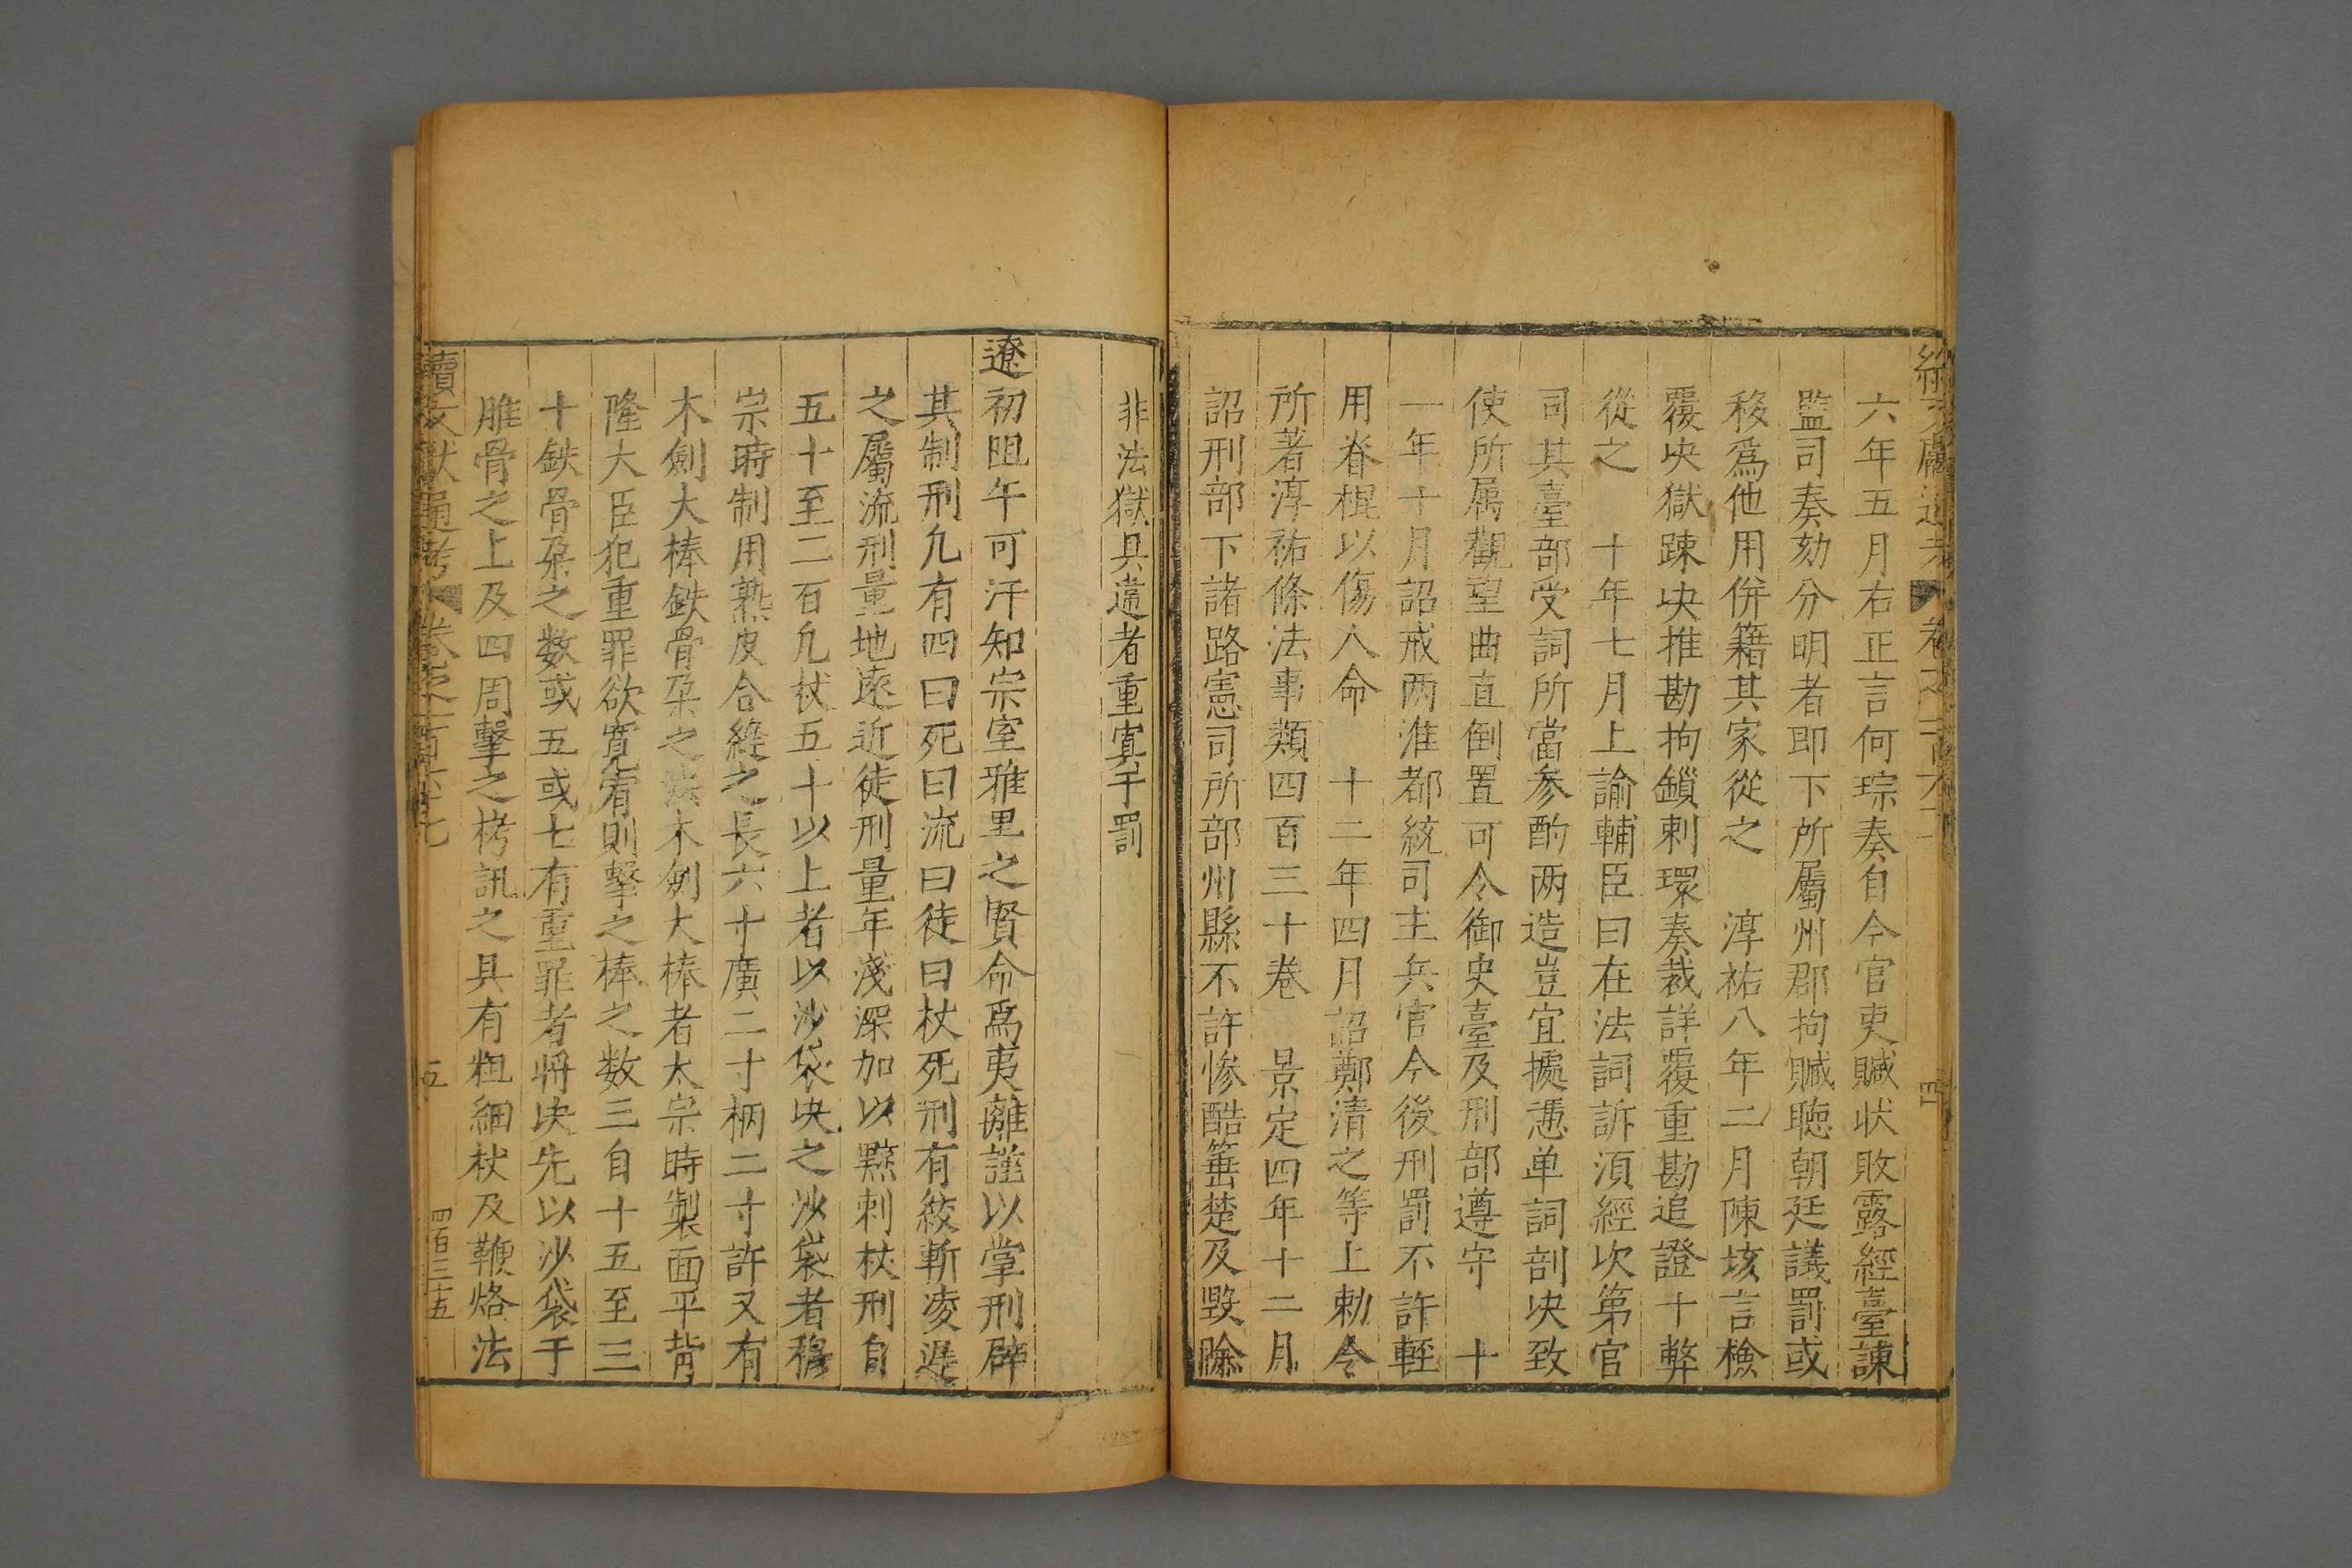 六年五月右正言何琮奏自今官吏贓状敗露經臺諫
監司奏劾分明者即下所屬州郡拘贓聴朝廷議罰或
移爲他用併籍其家從之 淳祐八年二月陳垓言檢
覆决獄踈决推勘拘鎖刺環奏裁詳覆重勘追證十弊
從之 十年七月上諭輔臣曰在法詞訴湏經次第官
司其臺部受詞所當參酌两造豈宜據憑单詞剖决致
使所属觀望曲直倒置可令御史臺及刑部遵守 十
一年十月詔戒两淮都統司主兵官今後刑罰不許輕
用脊棍以傷人命 十二年四月詔鄭清之等上勅令
所著淳祐條法事類四百三十卷 景定四年十二月
詔刑部下諸路憲司所部州縣不許惨酷箠楚及毁除
非法獄具違者重寘于罰
遼初阻午可汗知宗室雅里之賢命爲夷离菫以掌刑辟
其制刑凡有四曰死曰流曰徒曰杖死刑有絞斬凌遲
之屬流刑量地逺近徒刑量年淺深加以黥刺杖刑自
五十至二百凡杖五十以上者以沙袋决之沙袋者穆
宗時制用熟皮合縫之長六寸廣二寸柄二寸許又有
木劍大棒鉄骨朶之法木劍大棒者太宗時製面平背
隆大臣犯重罪欲寬宥則擊之棒之数三自十五至三
十鉄骨朶之数或五或七有重罪者将决先以沙袋于
脽骨之上及四周擊之栲訊之具有粗細杖及鞭烙法
續文獻通考 卷之一百六十七
五
四百三五